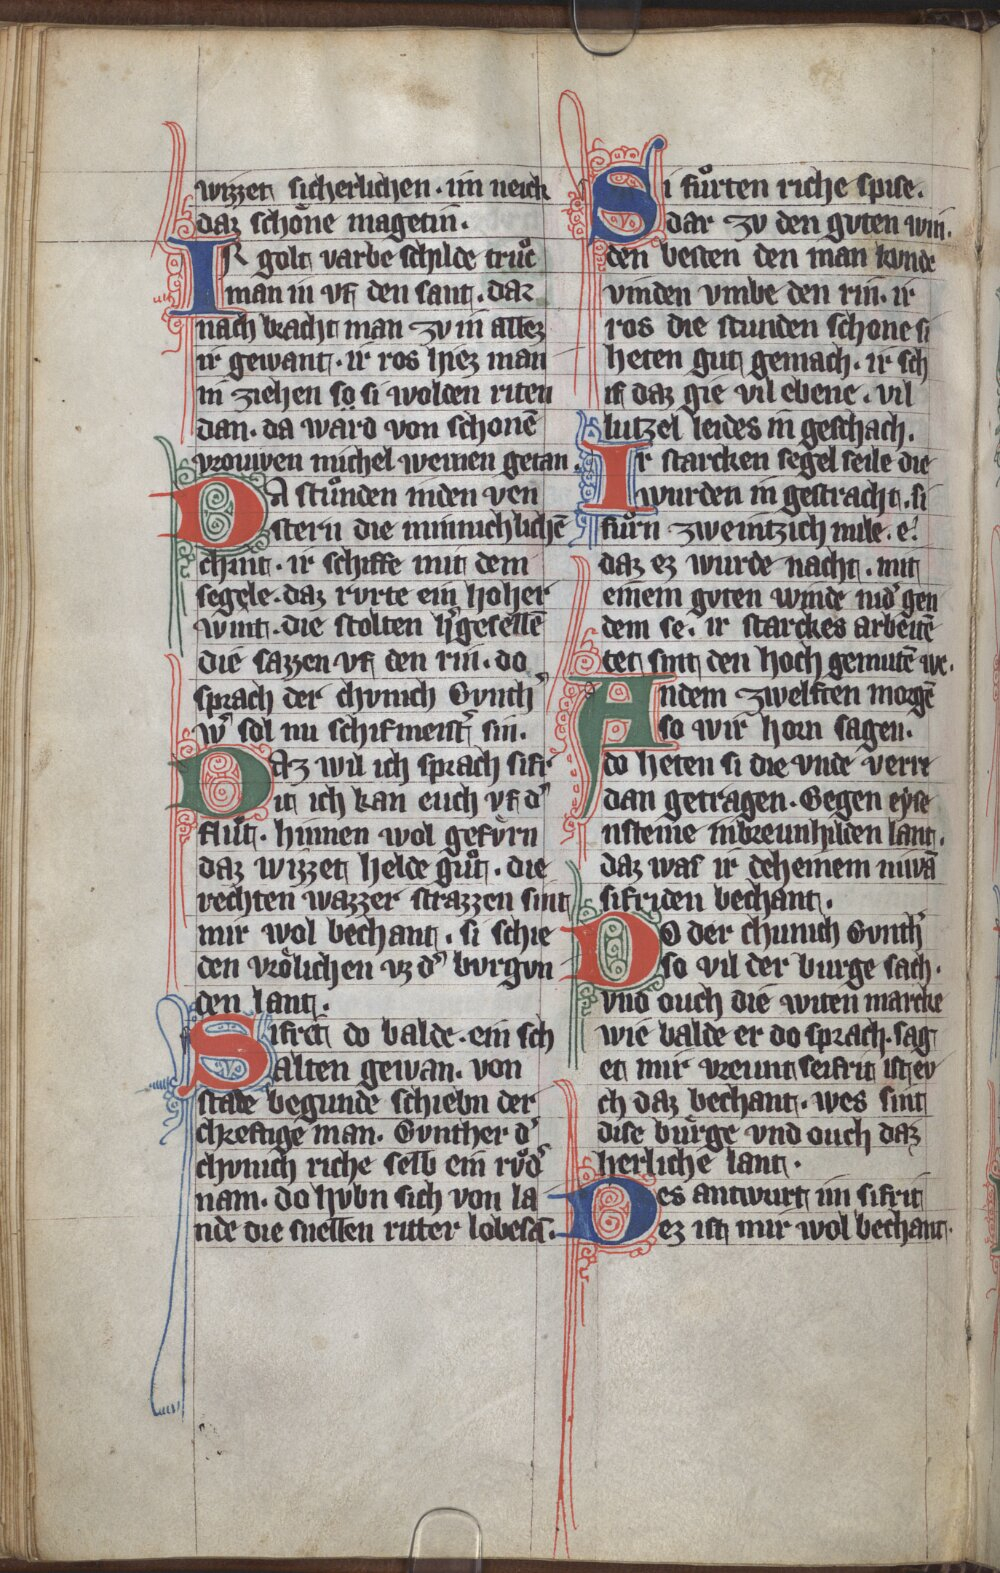 wizzet sicherlichen · im neick
daz schöne magetin .
IR golt varbe schilde trůc
man in vf den sant . dar
nach bracht man zv in allez
ir gewant · ir ros hiez man
in ziehen so si wolden riten
dan · da ward von schonē
vrouwen michel weinen getan .
DA stůnden inden ven
stern die minnichlichē
chint · ir schiffe mit dem
segele · daz rvrte ein hoher
wint · die stolten hʼgesellē
die sazzen vf den rin · do
sprach der chvnich Gvnthʼ
wʼ sol nu schifmeistʼ sin .
DAz wil ich sprach sifr
it ich kan euch vf dʼ
flůt · hinnen wol gefvrn
daz wizzet helde gůt · die
rechten wazzer strazzen sint
mir wol bechant . si schie
den vrölichen vz dʼ bvrgvn
den lant .
Sifrit do balde · ein sch
Alten gewan . von
stade begunde schiebn der
chreftige man . Gvnther dʼ
chvnich riche selb ein růdʼ
nam · do hvbn sich von la
nde die snellen ritter lobesā .
Si fůrten riche spise .
dar zv den gvten win .
den besten den man kvnde
vinden vmbe den rin . ir
ros die stunden schone si
heten gut gemach . ir sch
if daz gie vil ebene . vil
lutzel leides in geschach .
Ir starcken segel seile die
wurden in gestracht . si
fůrn zweintzich mile . eʼ
daz ez wurde nacht . mit
einem gvten winde nidʼ gen
dem se . ir starckes arbeitē
tet sint den hoch gemutē we .
Andem zwelften morgē
so wir horn sagen .
do heten si die vnde verre
dan getragen . Gegen eyse
nsteine inbreunhilden lant .
daz waſ ir deheinem nivā
sifriden bechant .
DO der chunich Gvnthʼ
so vil der burge sach .
vnd ouch die witen marcke
wie balde er do sprach . sag
et mir vreunt seifrit ist ev
ch daz bechant . wes sint
dise bürge vnd ouch daz
herliche lant .
Des antwurt im sifrit
ez ist mir wol bechant .